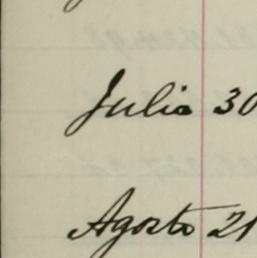 Julio 30
Agosto 21